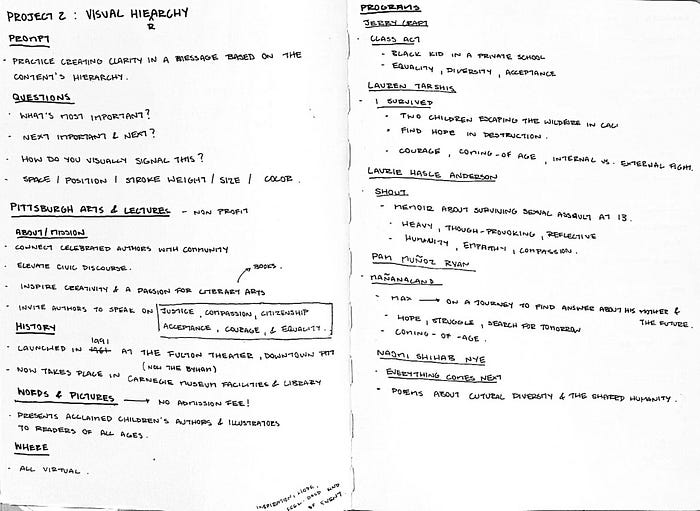 PROJECT 2 : VISUAL HIEARCHY
R
PROMPT
· PRACTICE CREATING CLARITY IN A MESSAGE BASED ON THE
CONTENT'S HIERARCHY.
QUESTIONS
· WHAT'S MOST IMPORTANT?
· NEXT IMPORTANT & NEXT?
· HOW DO YOU VISUALLY SIGNAL THIS?
· SPACE / POSITION / STROKE WEIGHT / SIZE / COLOR.
PITTSBURGH ARTS & LECTURES - NON PROFIT
ABOUT/MISSION
· CONNECT CELEBRATED AUTHORS WITH COMMUNITY
· ELEVATE CIVIC DISCOURSE.
BOOKS.
· INSPIRE CREATIVITY & A PASSION FOR LITERARY ARTS
· INVITE AUTHORS TO SPEAK ON JUSTICE, COMPASSION, CITIZENSHIP
ACCEPTANCE, COURAGE, & EQUALITY.
HISTORY
1991
· LAUNCHED IN 1961 AT THE FULTON THEATER, DOWNTOWN PITT
(NOW THE BYHAM)
· NOW TAKES PLACE IN CARNEGIE MUSEUM FACILITIES & LIBRARY
WORDS & PICTURES → NO ADMISSION FEE!
· PRESENTS ACCLAIMED CHILDREN'S AUTHORS & ILLUSTRATORS
TO READERS OF ALL AGES.
WHERE
· ALL VIRTUAL.
INSPIRATION, HOPE,
AND
OF EVENT.
PROGRAMS
JERRY CRAFT
· CLASS ACT
- BLACK KID IN A PRIVATE SCHOOL
- EQUALITY, DIVERSITY, ACCEPTANCE
LAUREN TARSHIS
· I SURVIVED
- TWO CHILDREN ESCAPING THE WILDFIRE IN CALI
- FIND HOPE IN DESTRUCTION.
- COURAGE, COMING-OF AGE, INTERNAL VS. EXTERNAL FIGHT.
LAURIE HASLE ANDERSON
· SHOUT
- MEMOIR ABOUT SURVIVING SEXUAL ASSAULT AT 13.
- HEAVY, THOUGH-PROVOKING, REFLECTIVE
- HUMANITY, EMPATHY, COMPASSION.
PAM MUÑOZ RYAN
· MAÑANALAND
- MAX → ON A JOURNEY TO FIND ANSWER ABOUT HIS MOTHER &
THE FUTURE.
- HOPE, STRUGGLE, SEARCH FOR TOMORROW
- COMING-OF-AGE.
NAOMI SHIHAB NYE
· EVERYTHING COMES NEXT
- POEMS ABOUT CUTURAL DIVERSITY & THE SHARED HUMANITY.